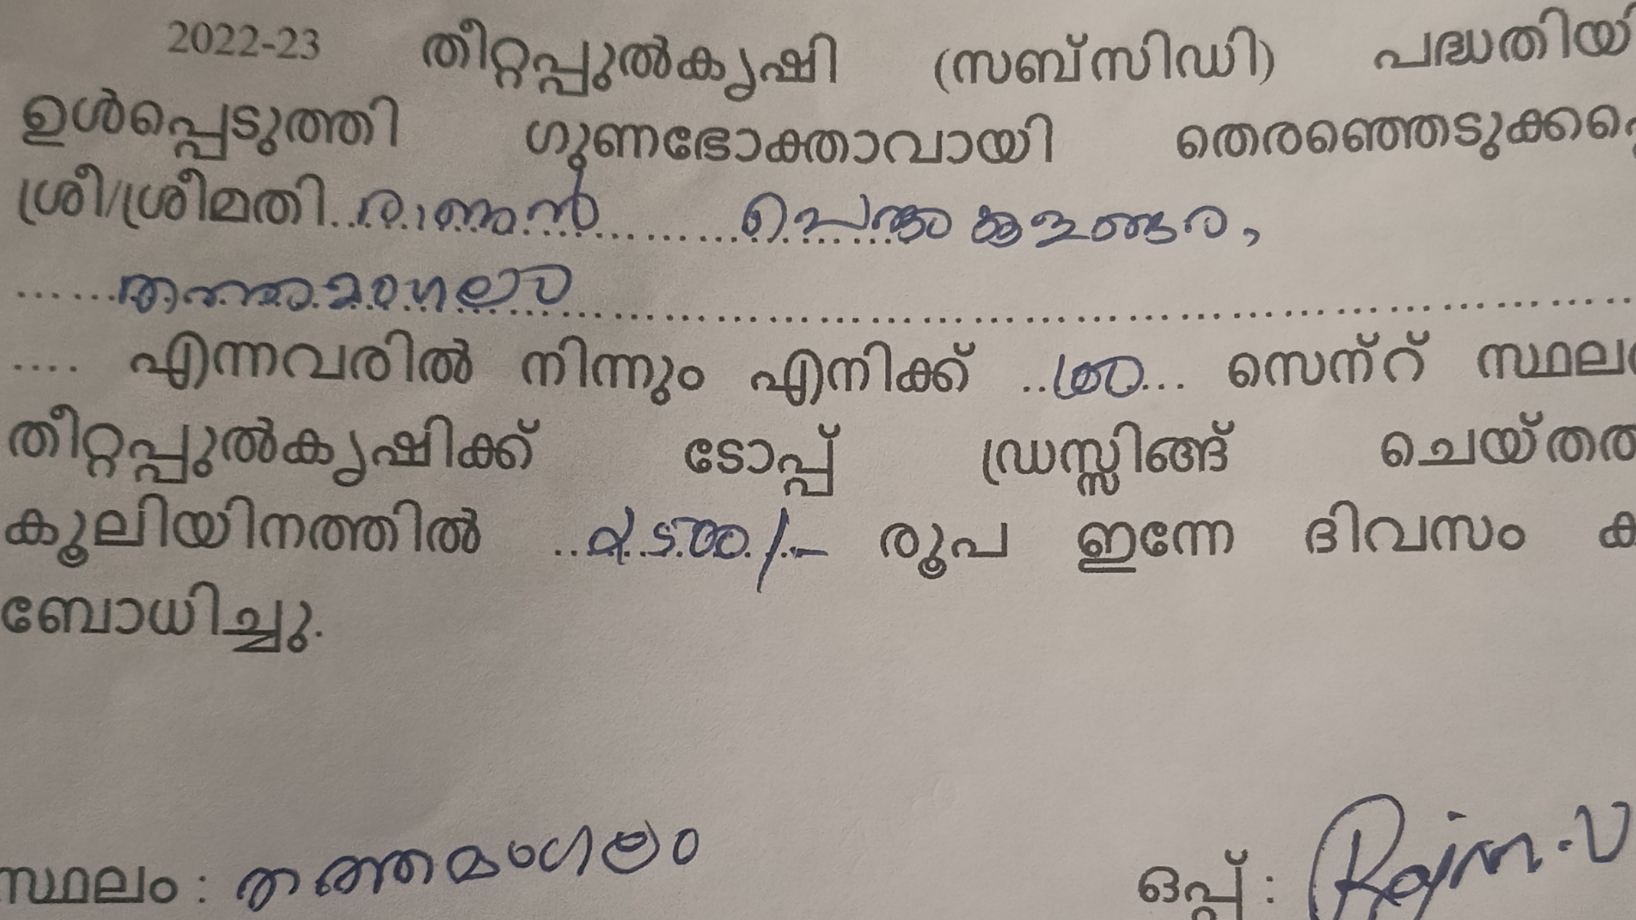 2022-23 തീറ്റപ്പുൽകൃഷി (സബ്സിഡി) പദ്ധതിയി
ഉൾപ്പെടുത്തി ഗുണഭോക്താവായി തെരഞ്ഞെടുക്കപ്പെ
ശ്രീ/ശ്രീമതി
തത്തമംഗലം
.... എന്നവരിൽ നിന്നും എനിക്ക് സെന്റ് സ്ഥല
തീറ്റപ്പുൽകൃഷിക്ക് ടോപ്പ് ഡ്രസ്സിങ്ങ് ചെയ്തത
കൂലിയിനത്തിൽ രൂപ ഇന്നേ ദിവസം ക
ബോധിച്ചു.
സ്ഥലം : തത്തമംഗലം ഒപ്പ് :